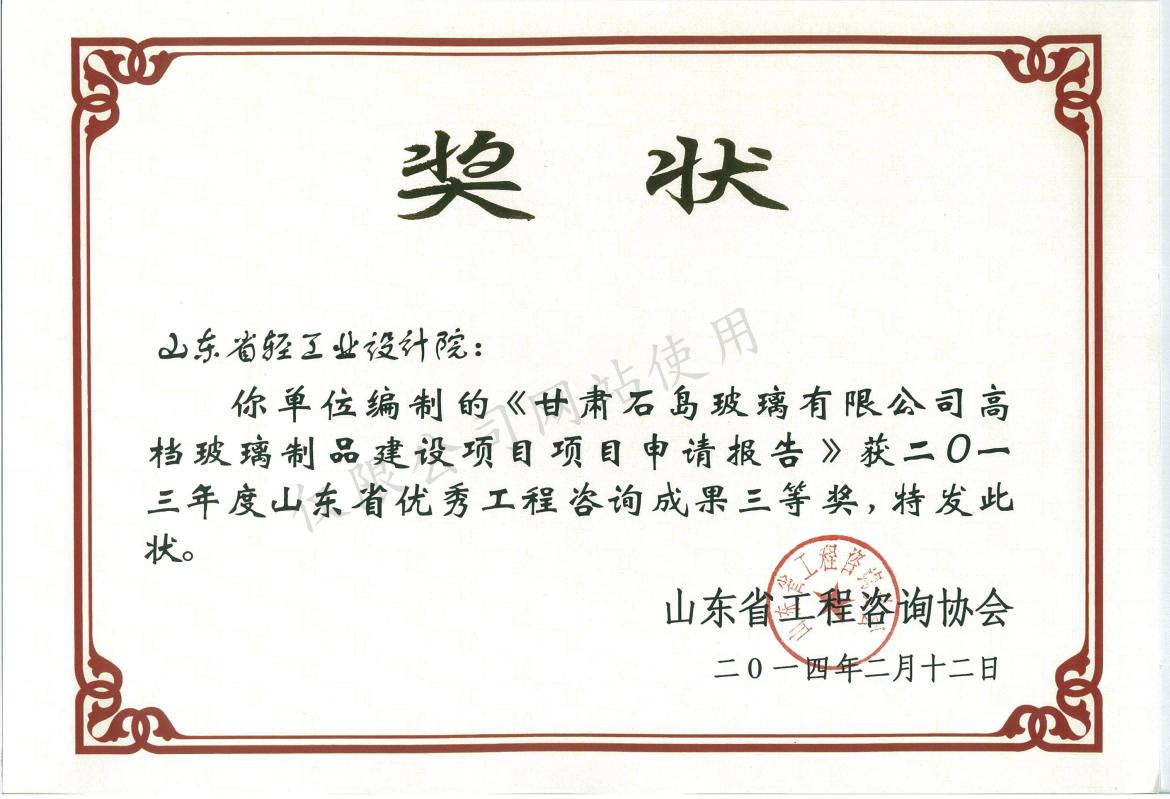 奖 状
山东省轻工业设计院：
你单位编制的《甘肃石岛玻璃有限公司高
档玻璃制品建设项目项目申请报告》获二〇一
三年度山东省优秀工程咨询成果三等奖，特发此
状。
山东省工程咨询协会
二〇一四年二月十二日
山东省工程咨询协会
仅限公司网站使用